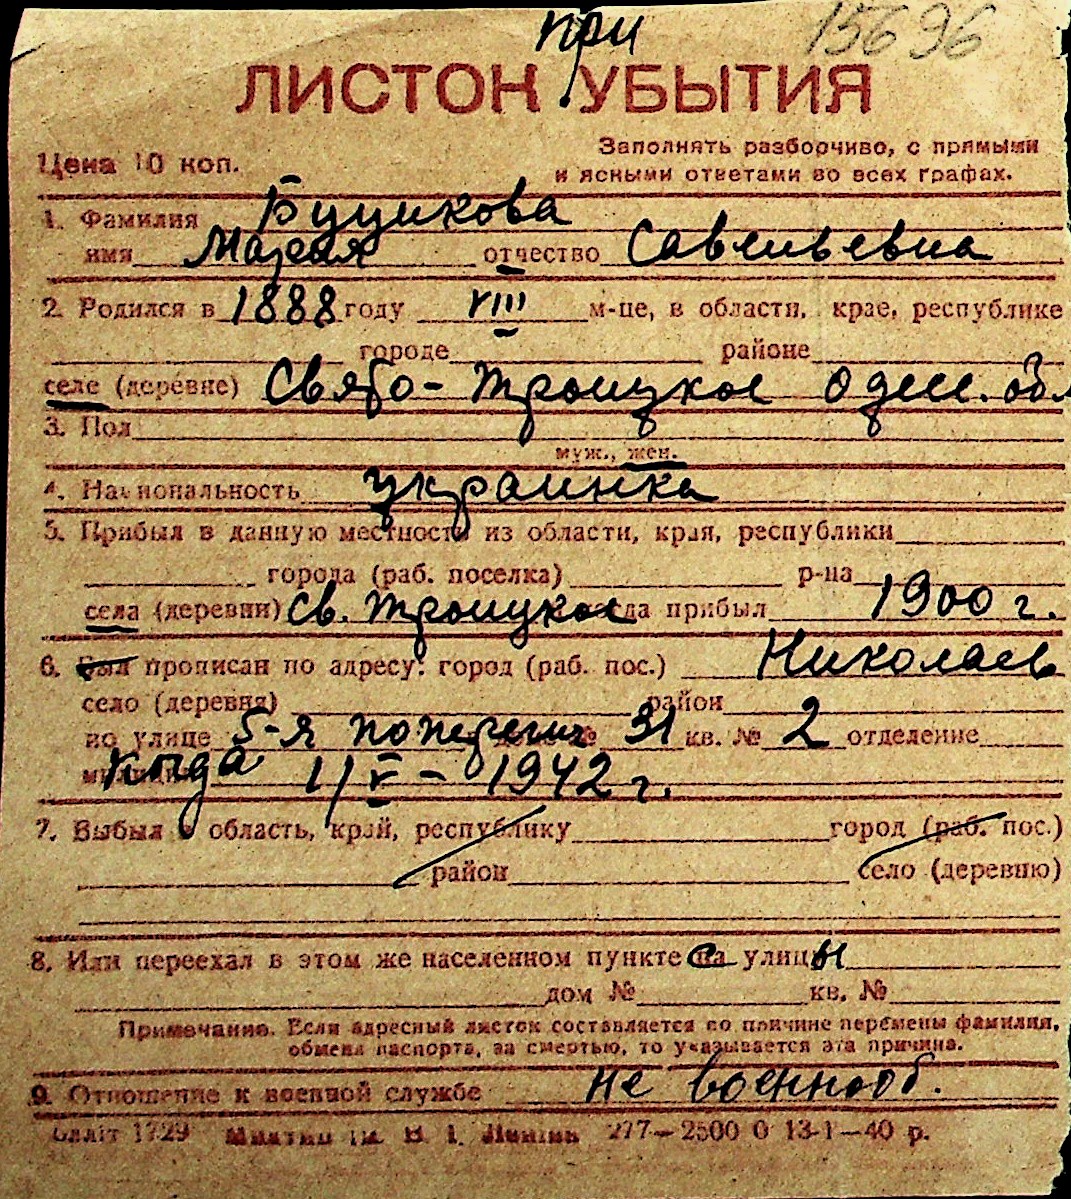 при 15696
ЛИСТОК УБЫТИЯ
Цена 10 коп.
Заполнять разборчиво, с прямыми
и ясными ответами во всех графах.
1. Фамилия Буцикова
имя Мария отчество Савельевна
2. Родился в 1888 году VIII м-це, в области, крае, республике
городе районе
селе (деревне) Свято-Троицкое Одесс. обл
3. Пол
муж., жен.
4. Национальность украинка
5. Прибыл в данную местность из области, края, республики
города (раб. поселка) р-на
села (деревни) Св. Троицкое когда прибыл 1900 г.
6. Был прописан по адресу: город (раб. пос.) Николаев
село (деревня) район
по улице 5-я попереч дом № 31 кв. № 2 отделение
милиции когда 1/V-1942 г.
7. Выбыл в область, край, республику город (раб. пос.)
район село (деревню)
8. Или переехал в этом же населенном пункте на с улицы
дом № кв. №
Примечание. Если адресный листок составляется по причине перемены фамилии,
обмена паспорта, за смертью, то указывается эта причина.
9. Отношение к военной службе не военнооб.
1729 В. І. Леніна 277—2500 0 13-1—40 р.